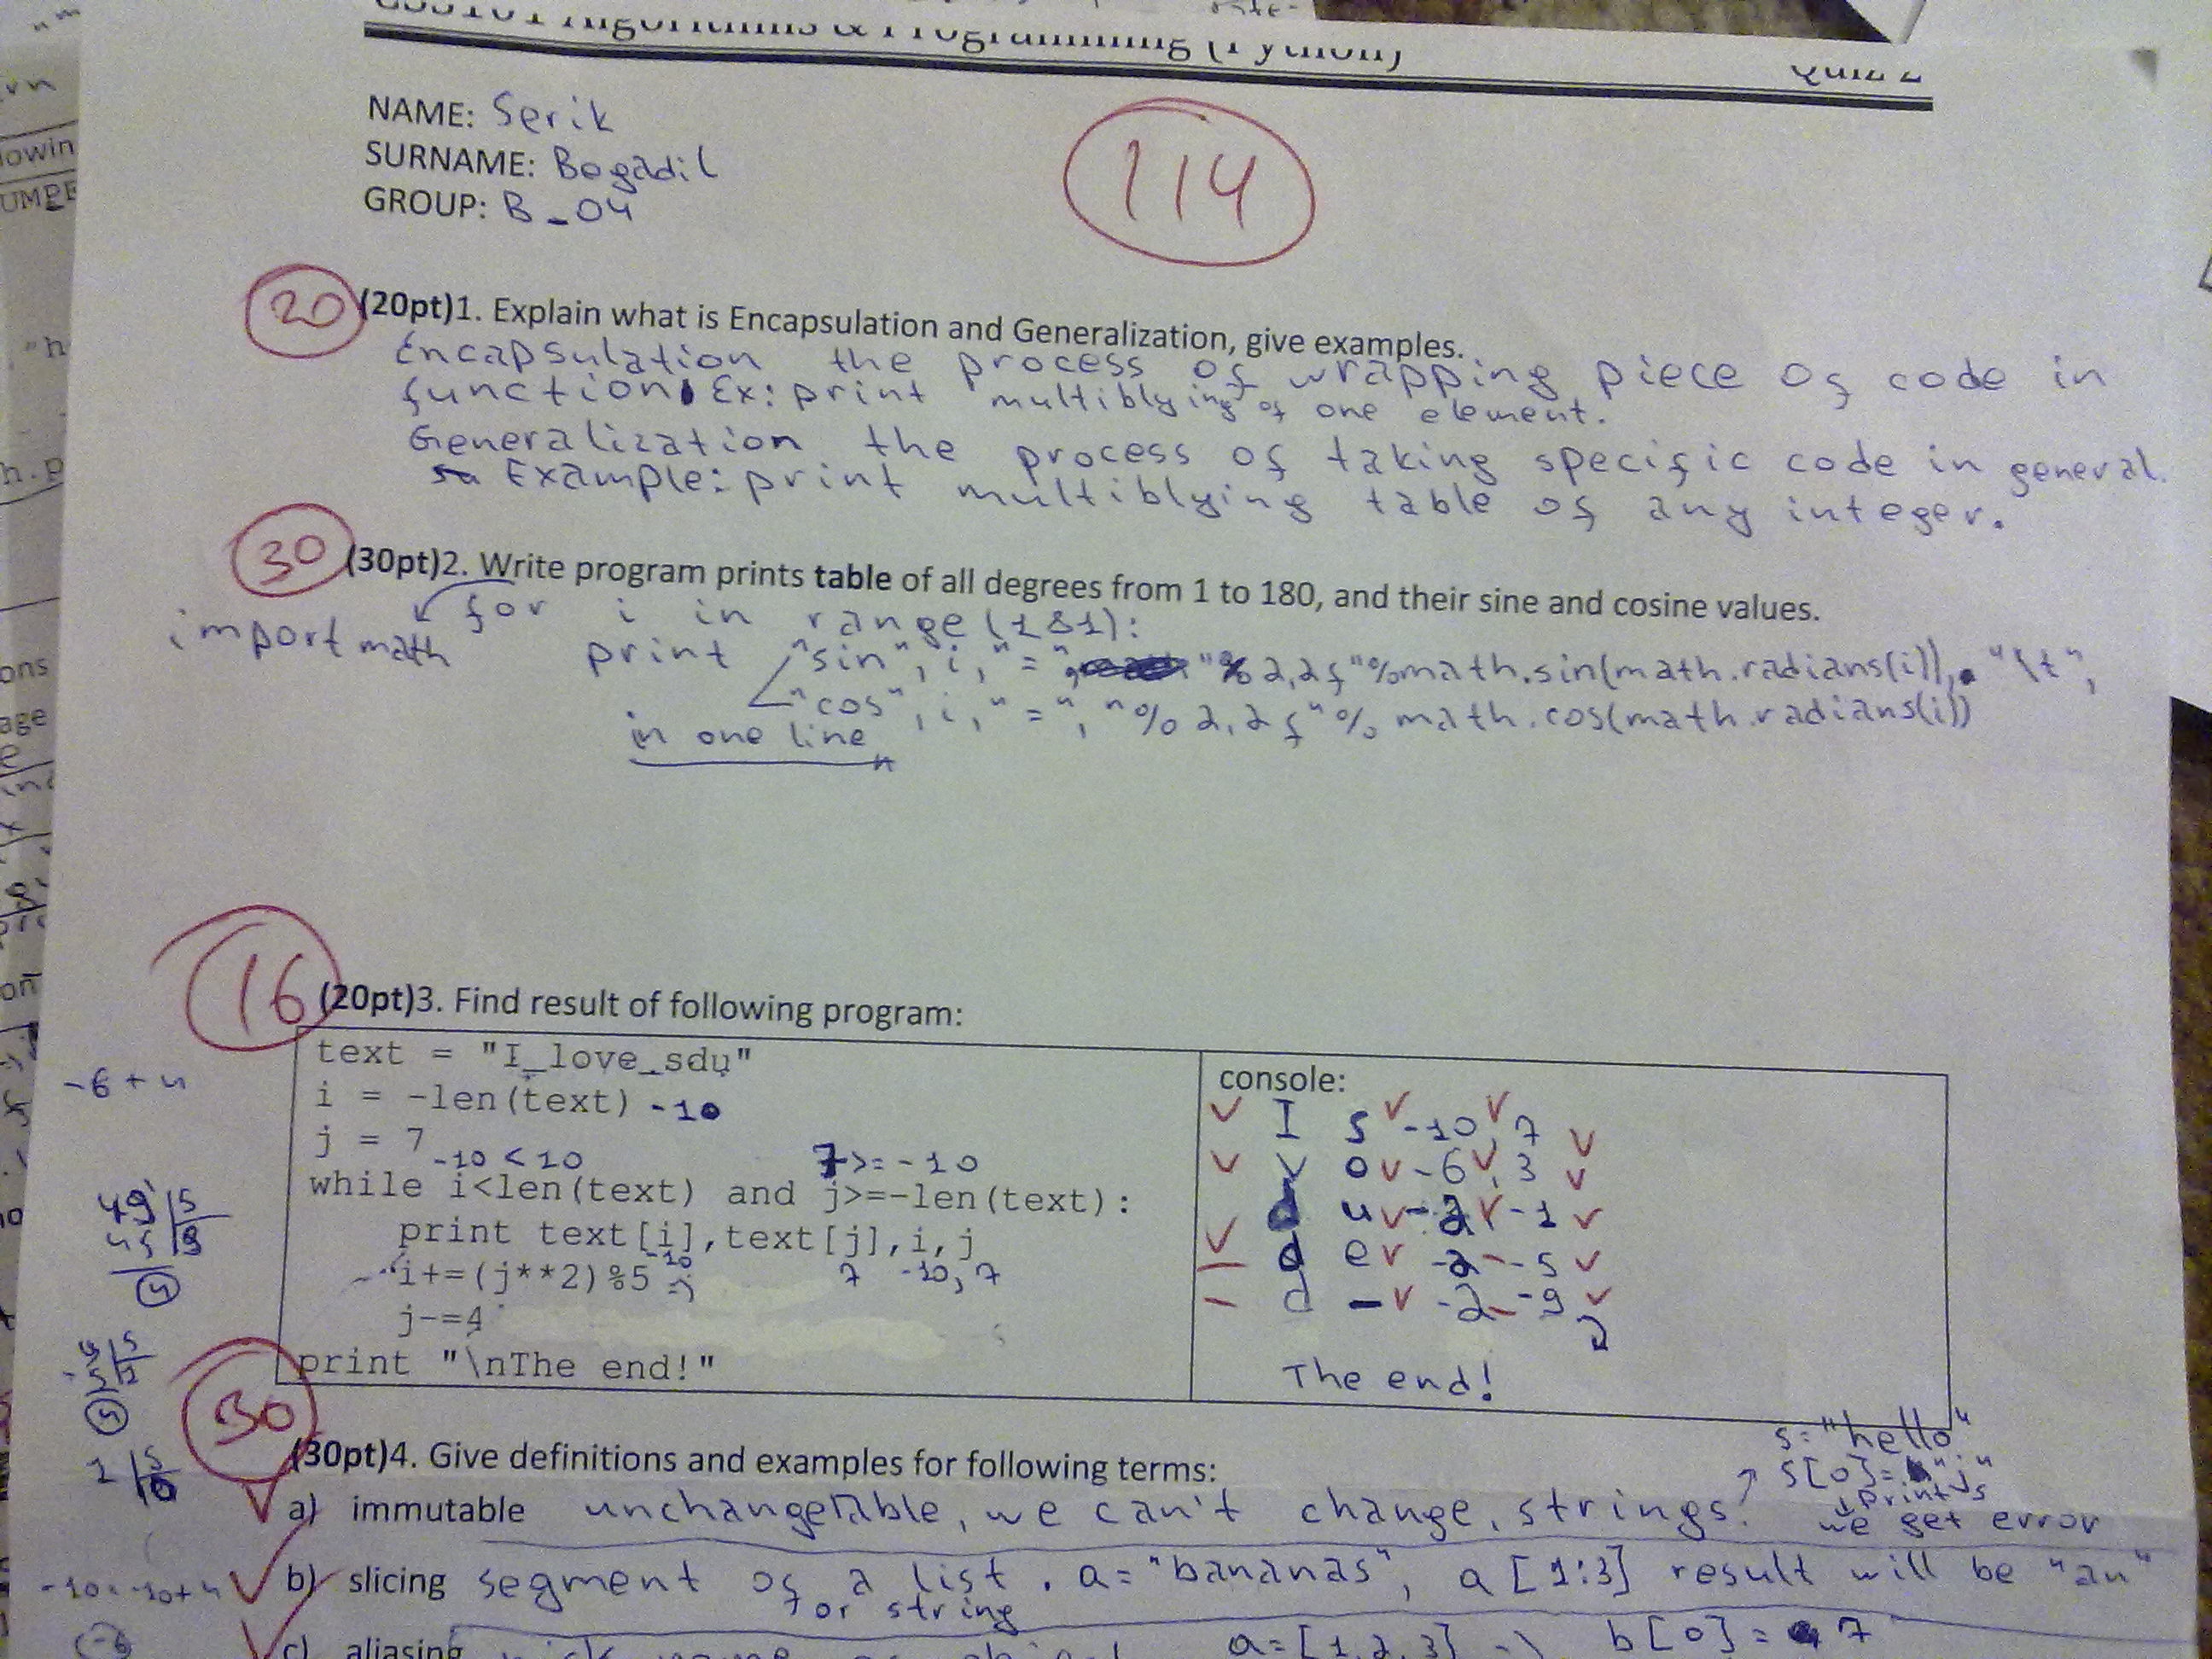 Algorithms & Programming (Python) Quiz 2
NAME: Serik
SURNAME: Bogadil
GROUP: B_04
114
20 (20pt)1. Explain what is Encapsulation and Generalization, give examples.
Encapsulation the process of wrapping piece of code in
function. Ex: print multiblying of one element.
Generalization the process of taking specific code in general.
Example: print multiblying table of any integer.
30 (30pt)2. Write program prints table of all degrees from 1 to 180, and their sine and cosine values.
import math for i in range(181):
print "sin", i, "=", "%2,2f"%math.sin(math.radians(i)), "\t",
"cos", i, "=", "%2,2f"%math.cos(math.radians(i))
in one line
16 (20pt)3. Find result of following program:
text = "I_love_sdu"
i = -len(text) -10
j = 7
-10 < 10 7>=-10
while i<len(text) and j>=-len(text):
print text[i],text[j],i,j
-10 7 -10, 7
i+=(j**2)%5
j-=4
print "\nThe end!"
console:
I s -10, 7
v o -6, 3
d u -2 -1
d e -2 -5
d - -2 -9
The end!
-6 + 4
49 5
45 9
4
30 (30pt)4. Give definitions and examples for following terms:
s="hello"
s[0]= "j"
print s
we get error
a) immutable unchangetable, we can't change, strings.
b) slicing segment of a list. a="bananas", a[1:3] result will be "an"
or string
-10=-10+4
-6
c) aliasing a=[1,2,3] b[0]= 7